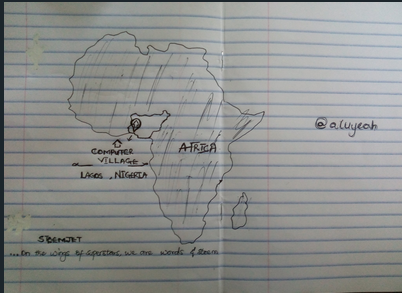 @a.luyeah
AFRICA
COMPUTER
VILLAGE
LAGOS, NIGERIA
... on the wings of we are words &